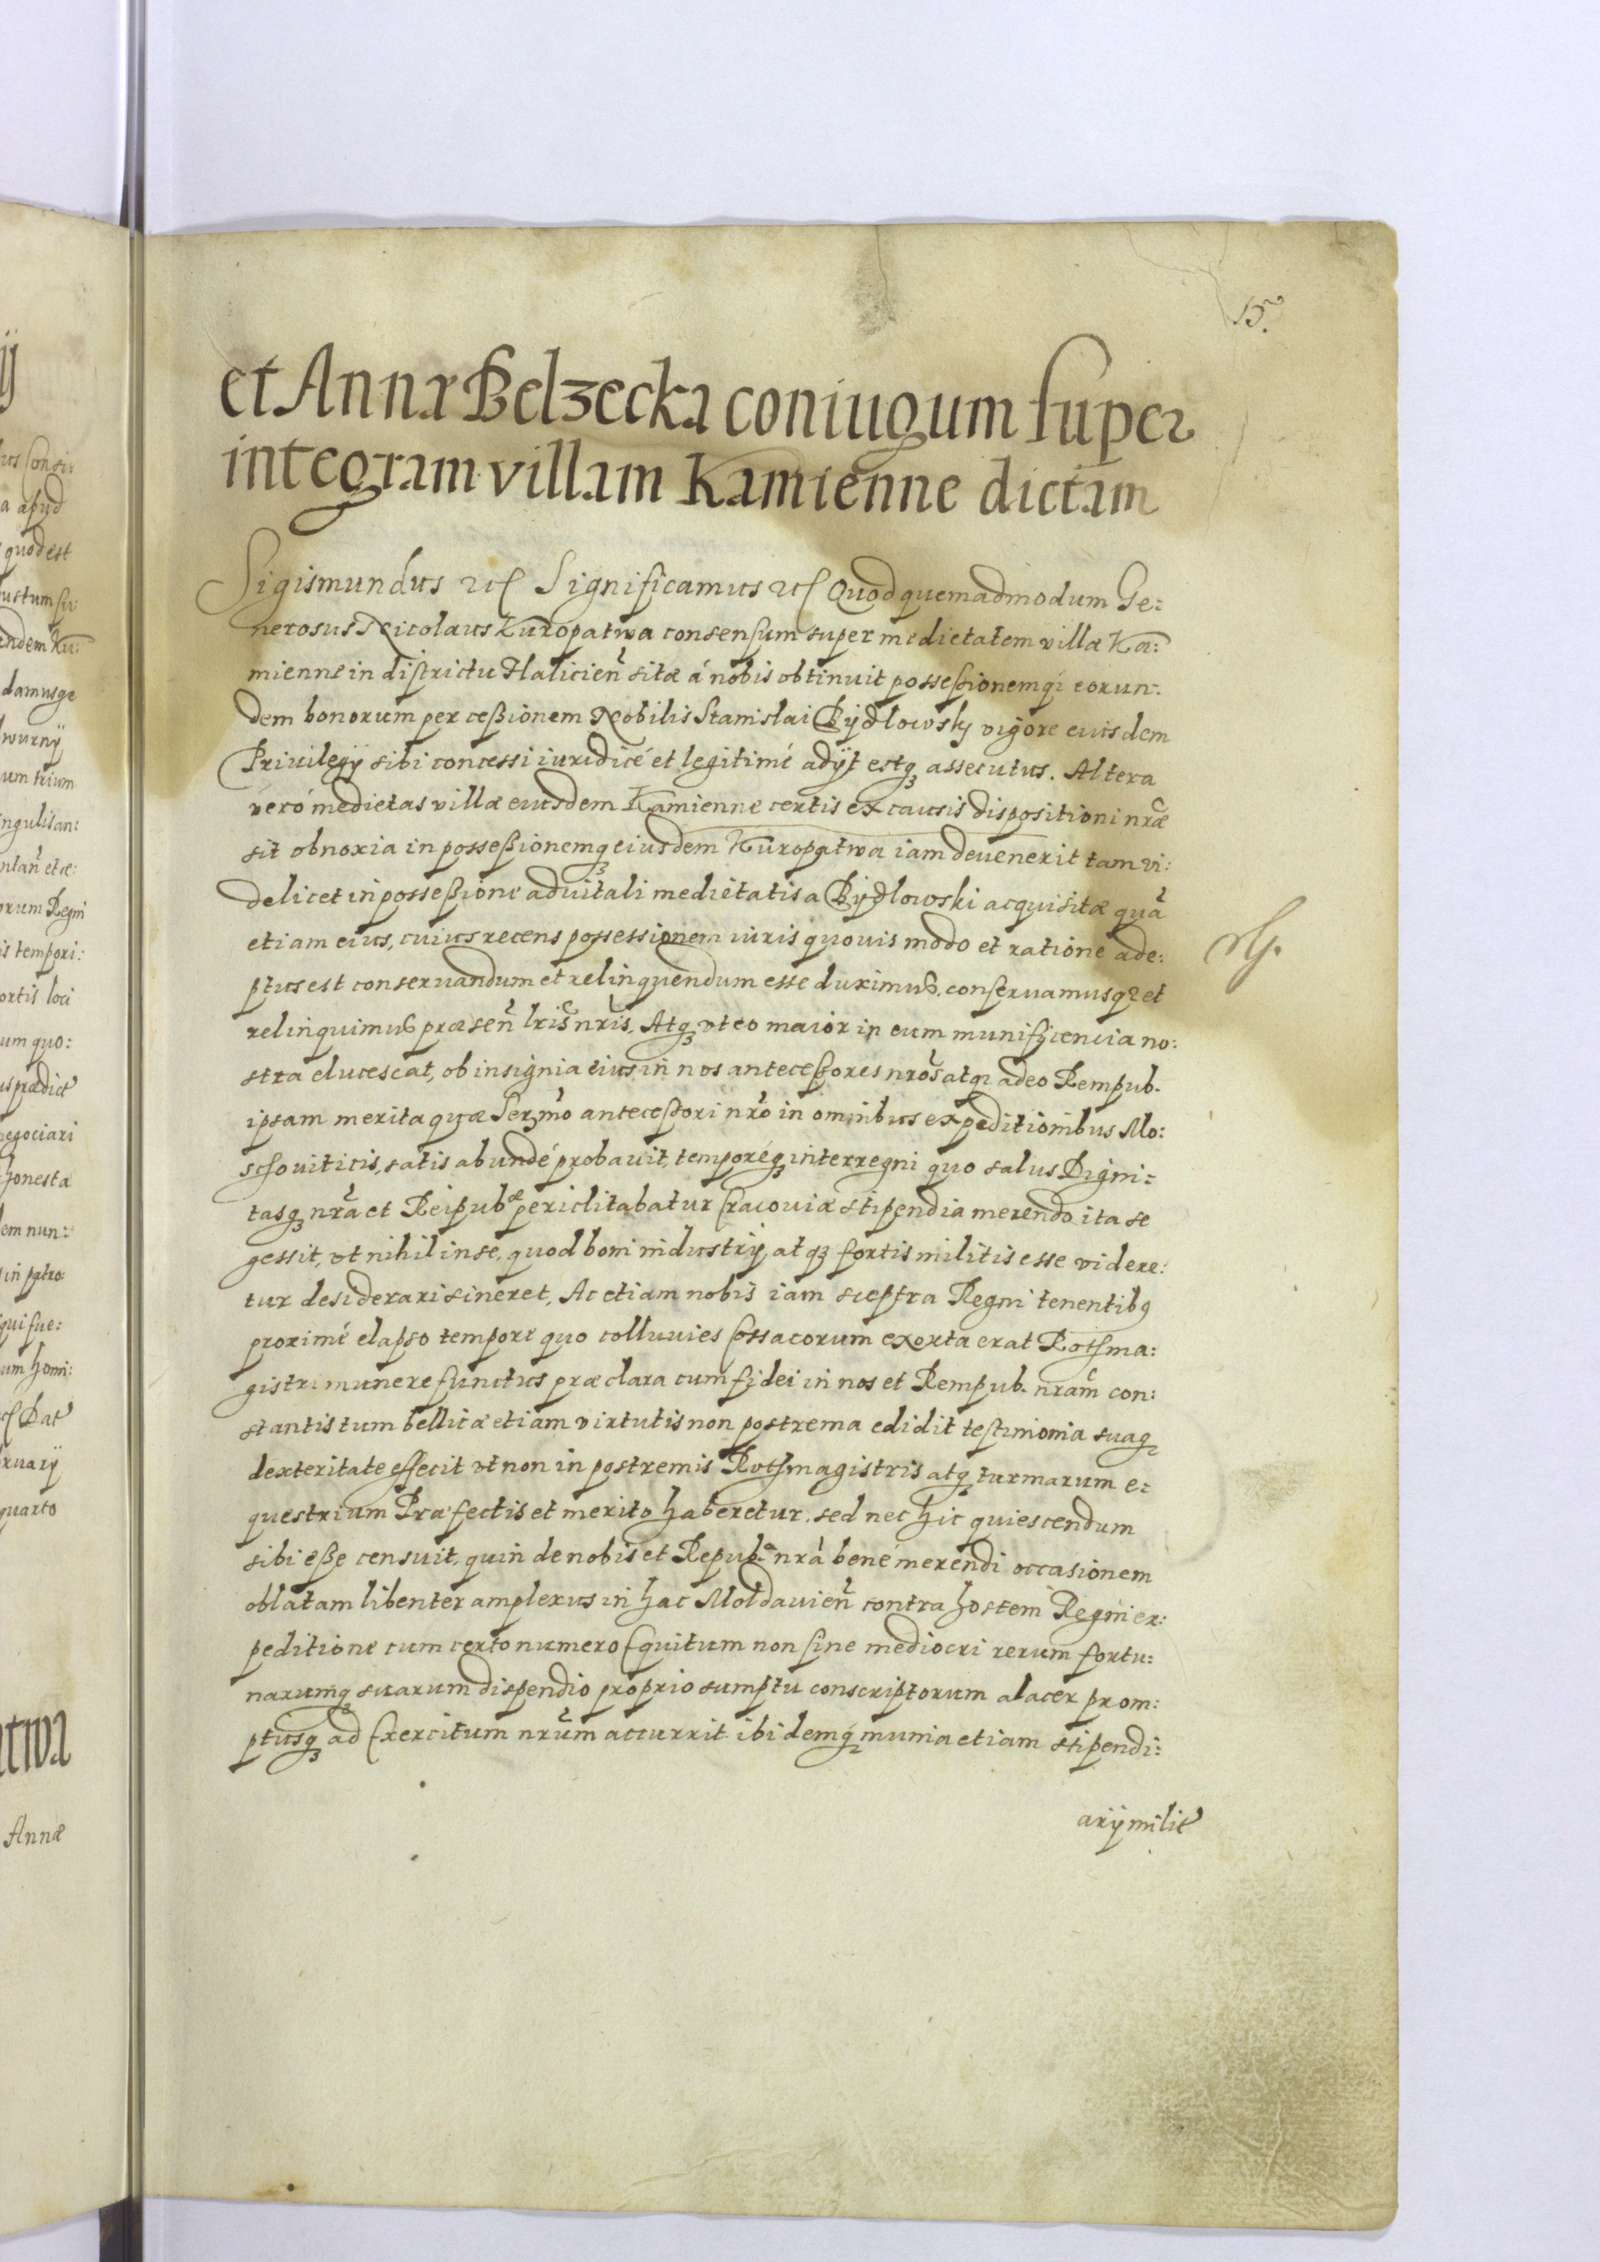 15.
et Annæ Belzecka coniugum super
integram villam Kamienne dictam
Sigismundus etc Significamus etc Quod quemadmodum Ge:
nerosus Nicolaus Kuropatwa consensum super medietatem villæ Ka:
mienne in districtu Halicien̄ sitæ á nobis obtinuit possessionemq; eorun:
dem bonorum per ceßionem Nobilis Stanislai Bydlowsky vigore eiusdem
Priuilegij sibi concessi iuridicé et legitimé adijt estq; assecutus. Altera
veró medietas villæ eiusdem Kamienne certis ex causis dispositioni nr̄æ
sit obnoxia in possessionemq; eiusdem Kuropatwa iam deuenerit tam vi:
delicet in possessione aduitali medietatis a Bydlowski acquisitæ quā
etiam eius, cuius recens possessionem iuris quouis modo et ratione ade:
ptus est conseruandum et relinquendum esse duximus, conseruamusq; et
relinquimus præsen̄ lr̄is nr̄is. Atq; vt eo maior in eum munificencia no:
stra elucescat, ob insignia eius in nos antecessores nr̄os atq; adeo Rempub.
ipsam merita quæ Serm̄o antecessori nr̄o in omnibus expeditionibus Mo:
schouiticis, satis abundé probauit, temporéq; interregni quo salus Digni:
tasq; nr̄a et Reipubæ periclitabatur Cracouiæ stipendia merendo ita se
gessit, vt nihil in se, quod boni industrij atq; fortis militis esse videre:
tur desiderari sineret, Ac etiam nobis iam sceptra Regni tenentibus
proximé elapso tempore quo colluuies Cossacorum exorta erat Rothma:
gistri munere functus præclara cum fidei in nos et Rempub. nr̄am con:
stantis tum bellicæ etiam virtutis non postrema edidit testimonia suaq;
dexteritate effecit vt non in postremis Rothmagistris atq; turmarum e:
questrium Præfectis et merito haberetur. sed nec hic quiescendum
sibi eße censuit, quin de nobis et Repuba nr̄a bené merendi occasionem
oblatam libenter amplexus in hac Moldauien̄ contra hostem Regni ex:
peditione cum certo numero Equitum non sine mediocri rerum fortu:
narumq; suarum dispendio proprio sumptu conscriptorum alacer prom:
ptusq; ad Exercitum nr̄um accurrit ibidemq; munia etiam stipendi:
arij milit